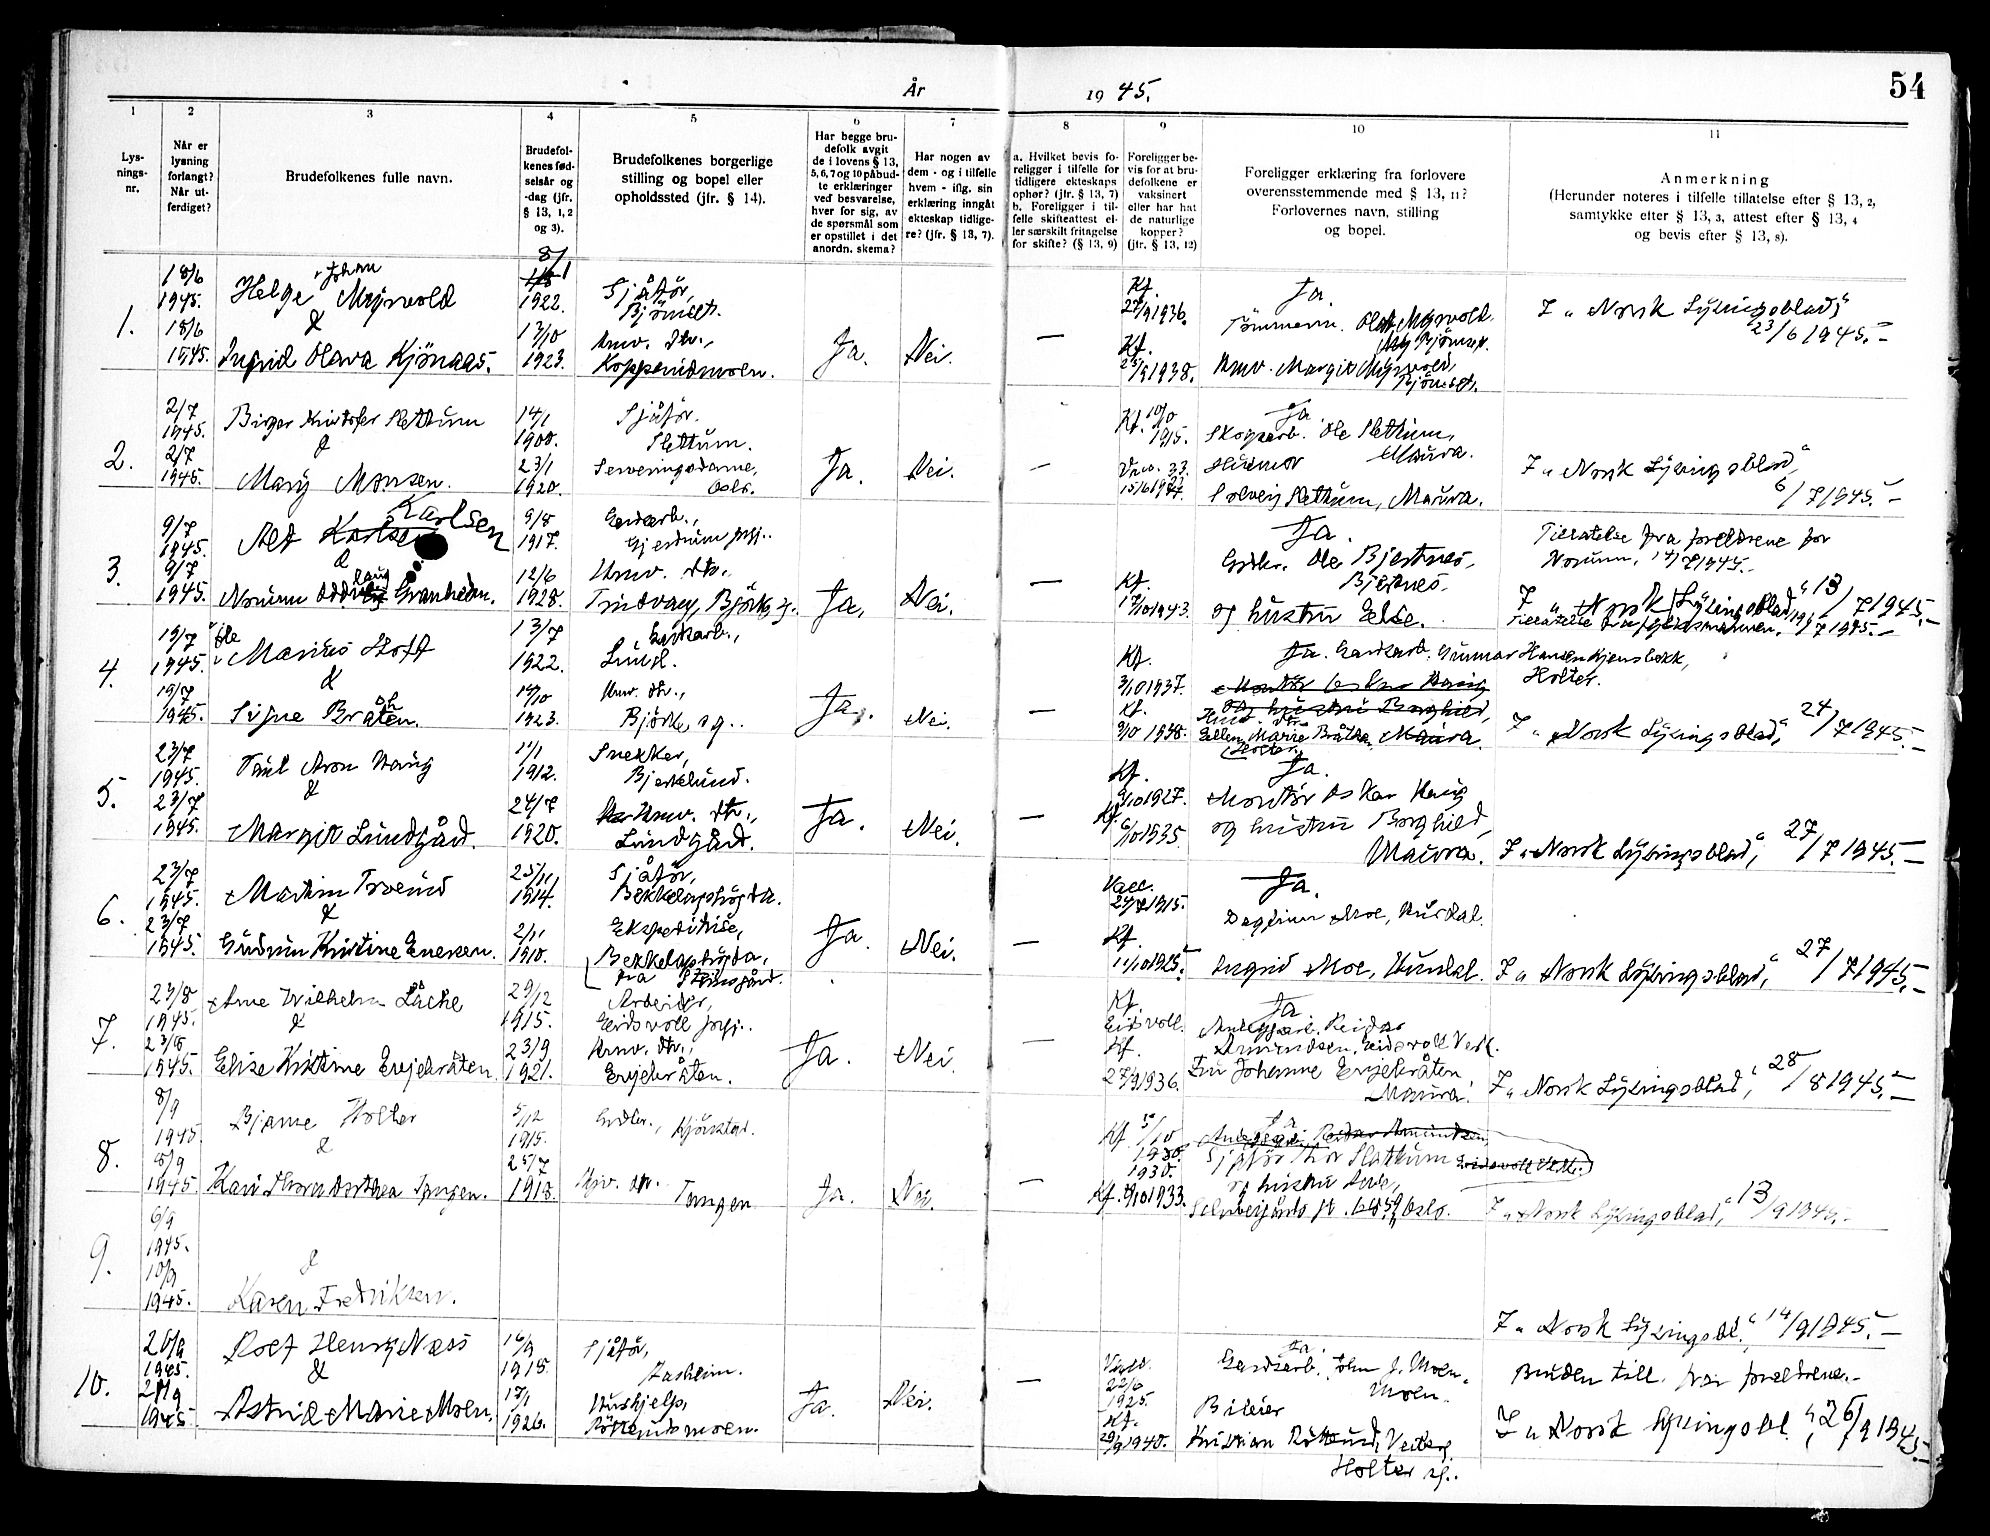 År
19 45.
54
1
2
3
4
5
6
7
8
9
10
11
Lys-
nings-
nr.
Når er
lysning
forlangt?
Når ut-
ferdiget?
Brudefolkenes fulle navn.
Brudefol-
kenes fød-
selsår og
-dag (jfr.
§ 13, 1, 2
og 3).
Brudefolkenes borgerlige
stilling og bopel eller
opholdssted (jfr. § 14).
Har begge bru-
defolk avgit
de i lovens § 13,
5, 6, 7 og 10 påbud-
te erklæringer
ved besvarelse,
hver for sig, av
de spørsmål som
er opstillet i det
anordn. skema?
Har nogen av
dem - og i tilfelle
hvem - iflg. sin
erklæring inngåt
ekteskap tidlige-
re? (jfr. § 13, 7).
a. Hvilket bevis fo-
religger i tilfelle for
tidligere ekteskaps
ophør? (jfr. § 13, 7)
b. Foreligger i til-
felle skifteattest el-
ler særskilt fritagelse
for skifte? (§ 13, 9)
Foreligger be-
vis for at bru-
defolkene er
vaksinert
eller har hat
de naturlige
kopper?
(jfr. § 13, 12)
Foreligger erklæring fra forlovere
overensstemmende med § 13, 11?
Forlovernes navn, stilling
og bopel.
Anmerkning
(Herunder noteres i tilfelle tillatelse efter § 13, 2,
samtykke efter § 13, 3, attest efter § 13, 4
og bevis efter § 13, 8).
1.
18/6
1945.
18/6
1945.
Johan
Helge Myrvold
&
Ingrid Olava Kjönaas.
8/1
1922.
13/10
1923.
Sjåför,
Björnelt.
Hmv. dtr.,
Koppenidmoen.
Ja.
Nei.
—
Kf.
1936.
Kf.
1938.
Ja.
Tömmerm. Olaf Myrvold.
Hmv. Margit Myrvold,
I "Norsk Lysingsblad"
23/6 1945. –
2.
2/7
1945.
2/7
1945.
Birger Kristofer Slettum
&
Mary Monsen.
14/1
1900.
23/1
1920.
Sjåför.
Slettum.
Serveringsdame,
Oslo.
Ja.
Nei.
—
Kf. 10/10
1915.
Ja
Skogsarb. Ole Slettum,
Maura.
Solveig Slettum, Maura.
I "Norsk Lysingsblad"
6/7 1945. –
3.
9/7
1945.
9/7
1945.
Alf Karlsen
&
Norunn Oddlaug Granheim.
9/8
1917.
12/6
1928.
Gardarb.,
Gjerdrum psgj..
Hmv. dtr.,
Trudvang, Björke sg.
Ja.
Nei.
—
Kf.
1943.
Ja.
Gbr. Ole Bjertnes,
Bjertnes.
og hustru Else.
Tillatelse fra foreldrene for
Norunn, 14/7 1945. –
I "Norsk Lysingsblad" 13/7 1945. –
Tillatelse fra fylkesmannen, 19/7 1945. –
4.
19/7
1945.
19/7
1945.
Ole
Marius Hoff
&
Signe Bråten.
13/7
1922.
14/10
1923.
Gardarb.,
Lund.
Hmv. dtr.,
Björke sg..
Ja.
Nei.
Kf.
3/10 1937.
Kf.
1938.
Ja. Gardarb. Gunnar Hansen Kjensbekk,
Holter.
Montör Oskar Haug
og hustru Borghild,
Hmv. dtr.
Ellen Marie Bråten, Maura.
Holter
I "Norsk Lysingsblad", 24/7 1945. –
5.
23/7
1945.
23/7
1945.
Paul Aron Haug
&
Margit Lundgård.
11/1
1912.
24/7
1920.
Snekker,
Bjerkelund.
Hmv. dtr.,
Lundgård.
Ja.
Nei.
—
Kf.
9/10 1927.
Kf.
6/10 1935.
Ja.
Montör Oskar Haug
og hustru Borghild,
Maura.
I "Norsk Lysingsblad", 27/7 1945. –
6.
23/7
1945.
23/7
1945.
Martin Troend
&
Gudrun Kristine Enersen.
25/11
1914.
2/11
1910.
Sjåför,
Bekkelagshögda.
Ekspeditrise,
Bekkelagshögda,
fra Stensgård.
Ja.
Nei.
—
Vacc.
1915.
Kf.
11/10 1925.
Ja.
Dagfinn Moe, Hurdal.
Ingrid Moe, Hurdal.
I "Norsk Lysingsblad", 27/7 1945. –
7.
23/8
1945.
23/8
1945.
Arne Wilhelm Låche
&
Elise Kristine Erpebråten.
29/12
1915.
23/9
1921.
Arbeider,
Eidsvoll psgj..
Hmv. dtr.,
Erpebråten.
Ja.
Nei.
—
Kf.
Eidsvoll.
Kf.
27/9 1936.
Ja
Anleggsarb. Reidar
Amundsen, Eidsvoll Verk.
Fru Johanne Erpebråten,
Maura.
I "Norsk Lysingsblad", 28/8 1945. –
8.
8/9
1945.
8/9
1945
Bjarne Holter
&
Kari Thora Dorthea Tangen.
5/12
1915.
25/7
1918.
Gbr., Kjörstad.
Hmv. dtr.
Tangen
Ja.
Nei.
—
Kf. 5/10
1930.
1930.
Kf. 1933.
Ja
Anleggsarb. Reidar Amundsen,
Eidsvoll Verk.
Sjåför Thor Slettum
og hustru
Oslo.
I "Norsk Lysingsblad", 13/9 1945. –
9.
6/9
1945.
10/9
1945.
&
Karen Fredriksen.
I "Norsk Lysingsbl.", 14/9 1945. –
10.
20/9
1945.
21/9
1945
Rolf Henry Næss
&
Astrid Marie Moen.
16/9
1918.
18/1
1926.
Sjåför,
Aasheim.
Hushjelp,
Röttendsmoen.
Ja.
Nei.
—
22/6
1925.
Kf.
29/9 1940.
Ja.
Gardsarb. John J. Moen,
Moen.
Bileier
Kristian Röttend,
Holter sg..
Bruden till. fra foreldrene. –
I "Norsk Lysingsbl.", 26/9 1945. –